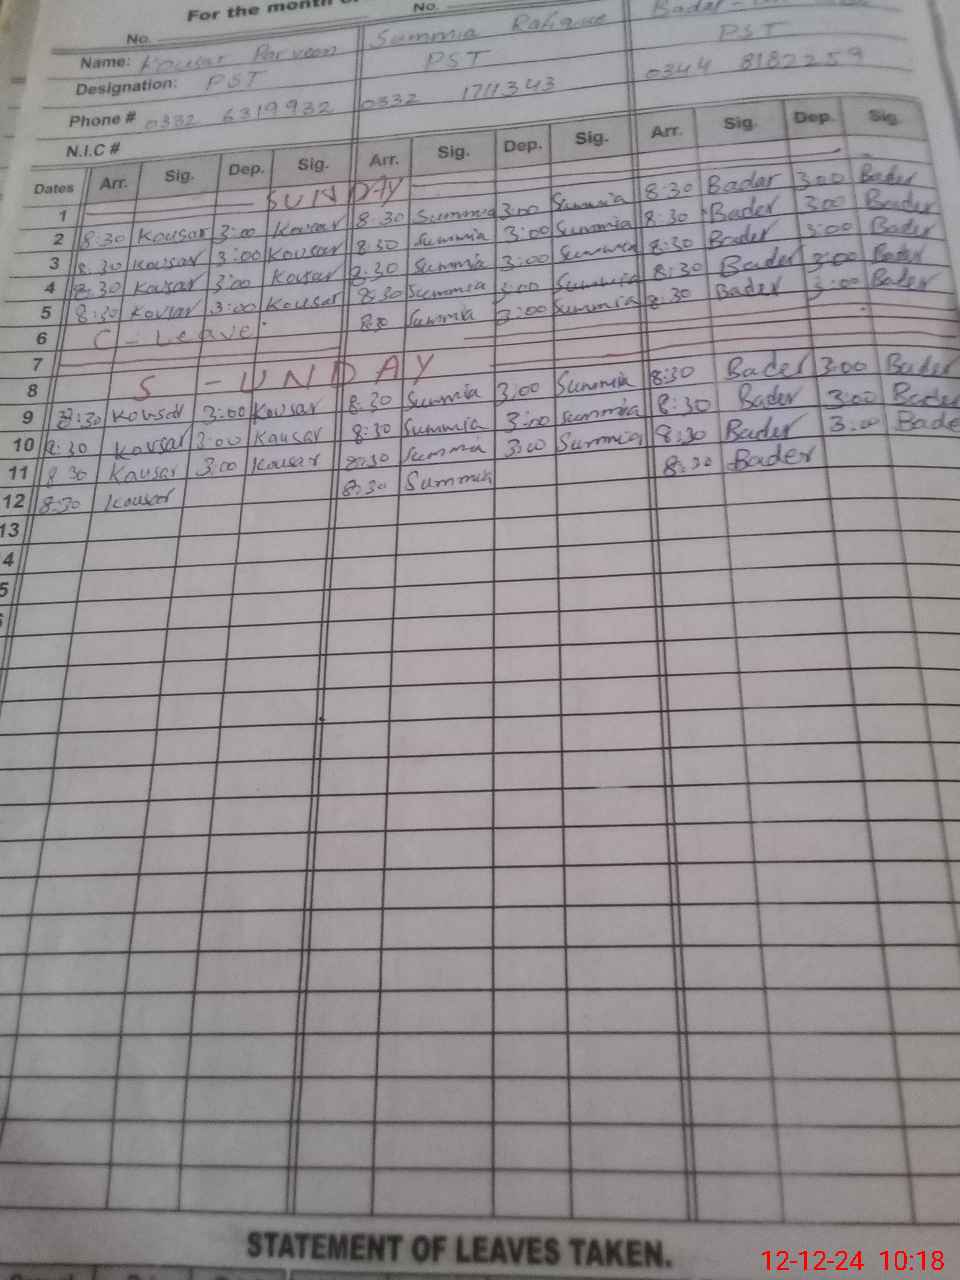 For the month
No. No.
Name: Kousar Parveen Summia Rafique Bader
Designation: PST PST PST
Phone # 0332 6319932 0332 1711343 0344 8182259
N.I.C #
Dates Arr. Sig. Dep. Sig. Arr. Sig. Dep. Sig. Arr. Sig. Dep. Sig.
1 SUNDAY
2 8:30 Kousar 3:00 Kousar 8:30 Summia 3:00 Summia 8:30 Bader 3:00 Bader
3 8:30 Kousar 3:00 Kousar 8:30 Summia 3:00 Summia 8:30 Bader 3:00 Bader
4 8:30 Kousar 3:00 Kousar 8:30 Summia 3:00 Summia 8:30 Bader 3:00 Bader
5 8:30 Kousar 3:00 Kousar 8:30 Summia 3:00 Summia 8:30 Bader 3:00 Bader
6 C - Leave 8:30 Summia 3:00 Summia 8:30 Bader 3:00 Bader
7
8 S - UNDAY
9 8:30 Kousar 3:00 Kousar 8:30 Summia 3:00 Summia 8:30 Bader 3:00 Bader
10 8:30 Kousar 3:00 Kousar 8:30 Summia 3:00 Summia 8:30 Bader 3:00 Bader
11 8:30 Kousar 3:00 Kousar 8:30 Summia 3:00 Summia 8:30 Bader 3:00 Bade
12 8:30 Kousar 8:30 Summia 8:30 Bader
13
4
5
STATEMENT OF LEAVES TAKEN.
12-12-24 10:18